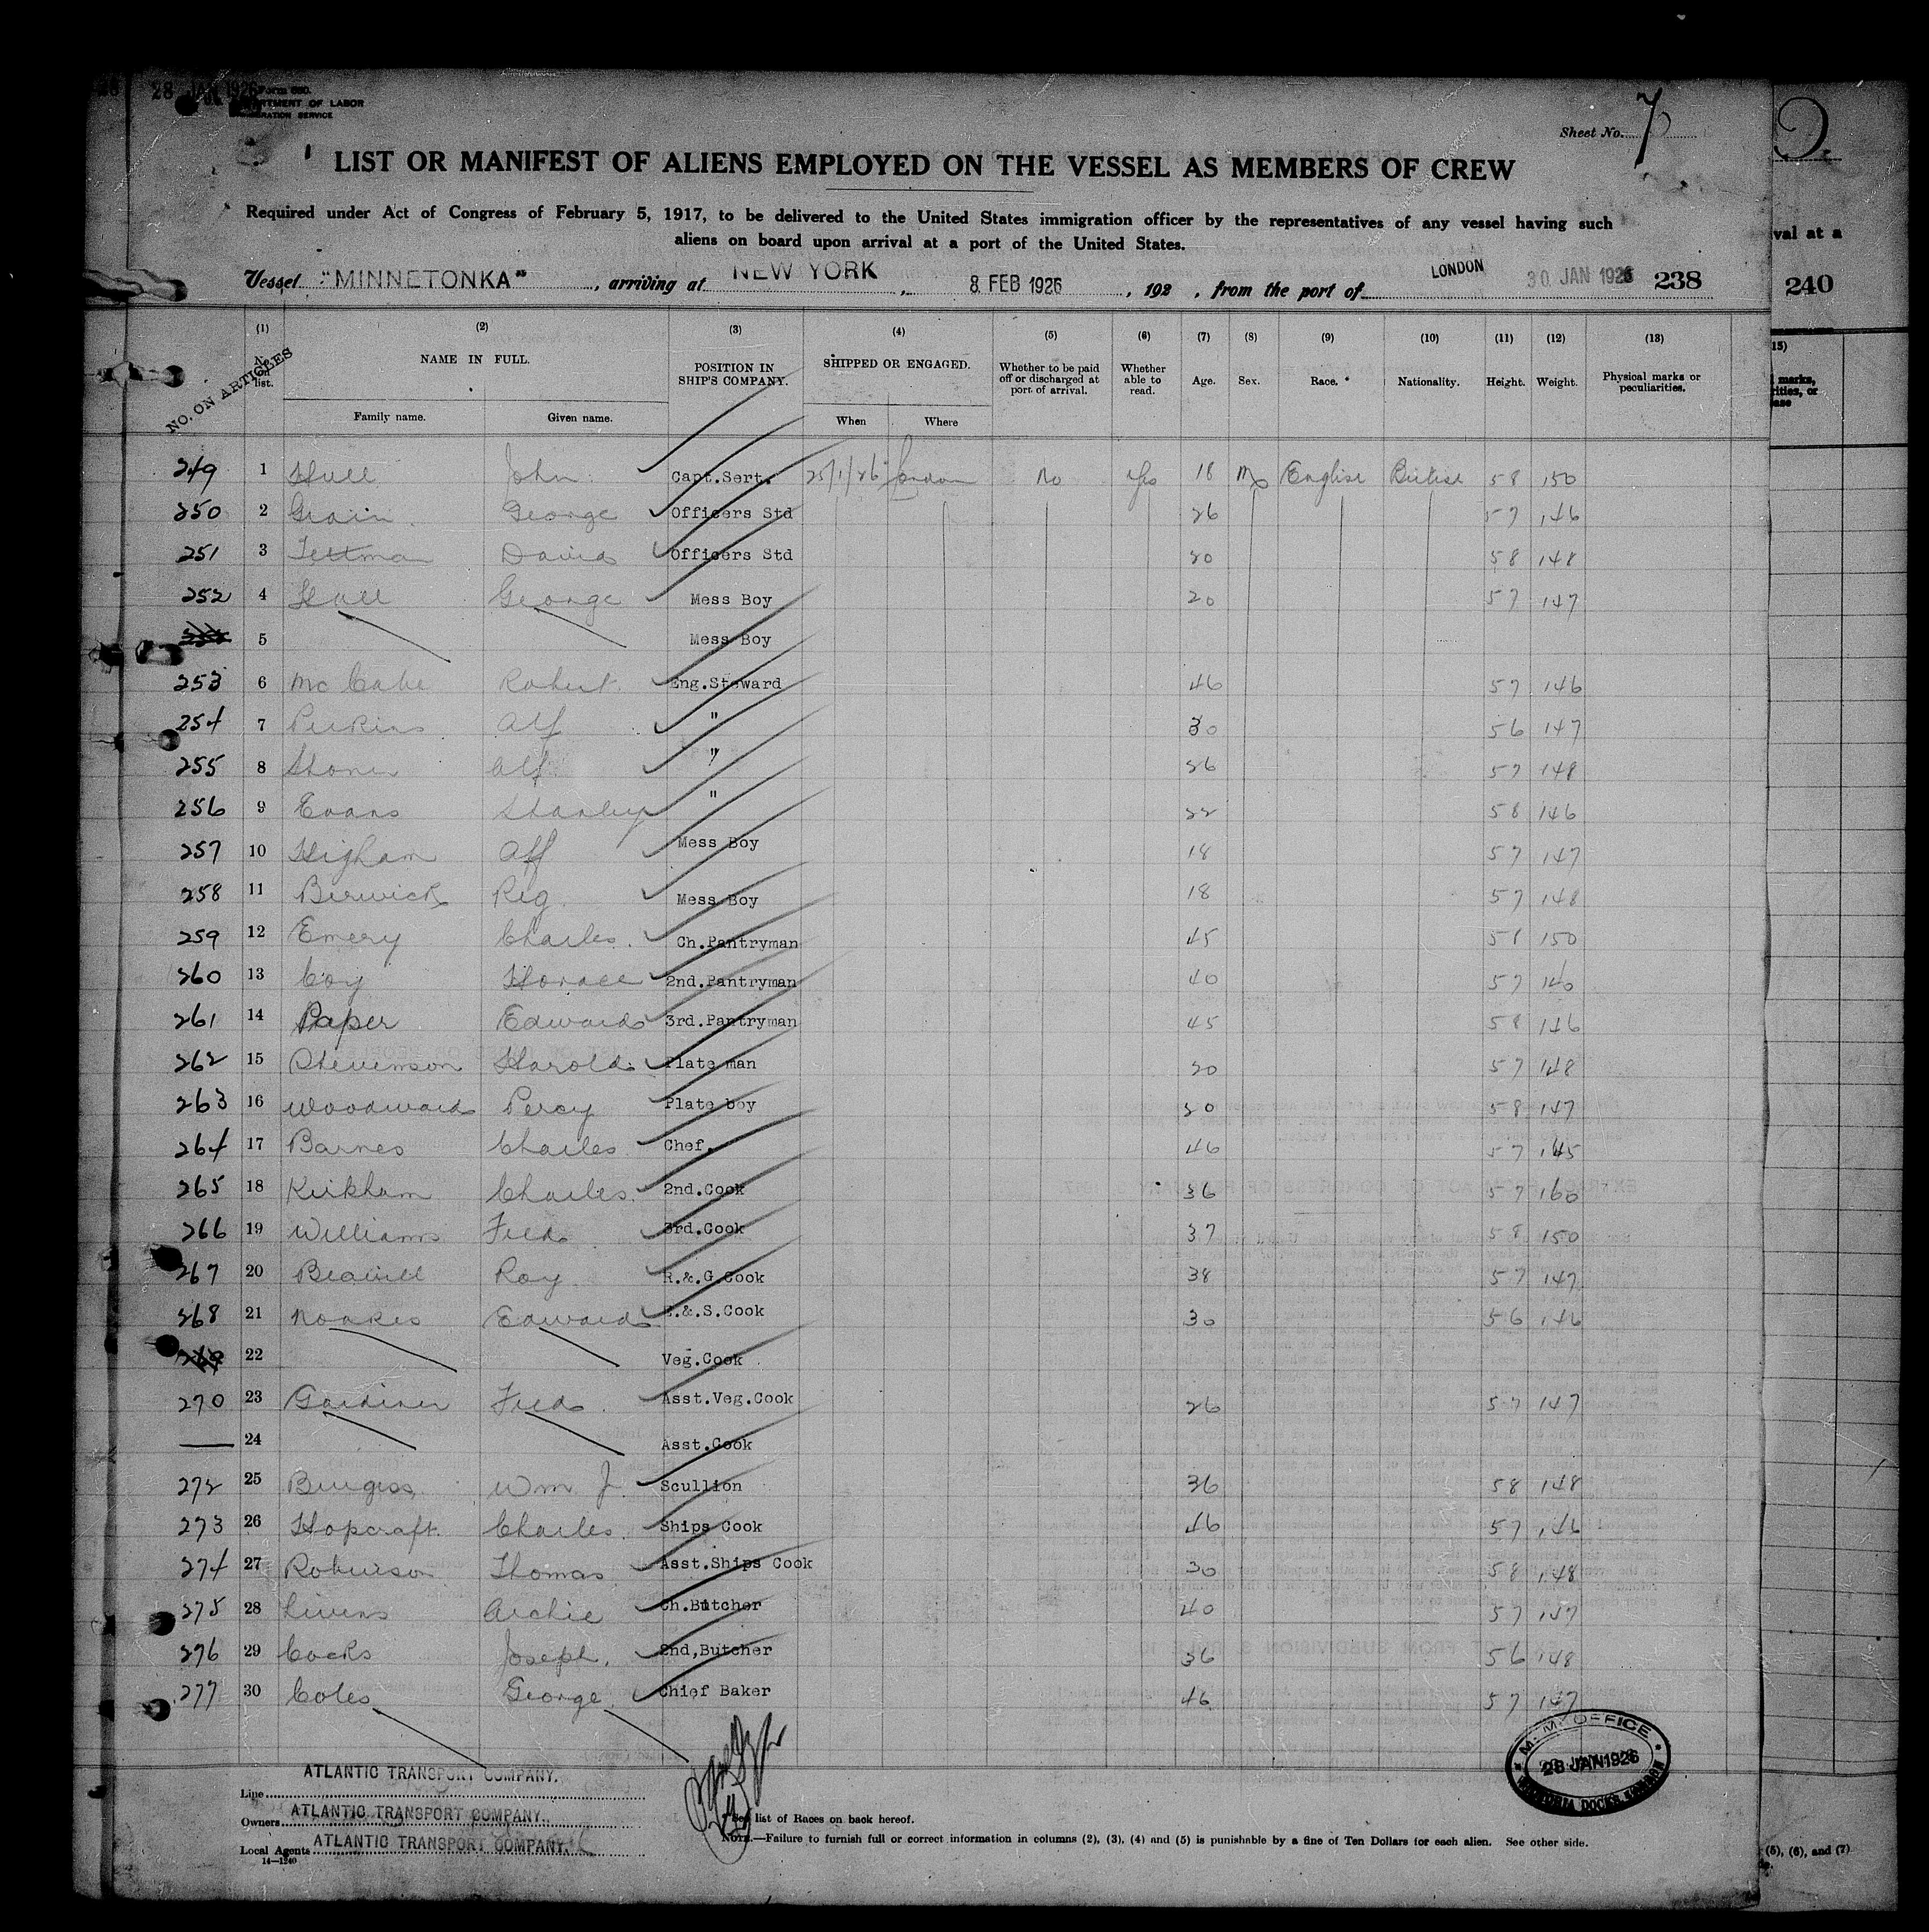 28 JAN 1926 Form 680.
DEPARTMENT OF LABOR
IMMIGRATION SERVICE
Sheet No. 7
LIST OR MANIFEST OF ALIENS EMPLOYED ON THE VESSEL AS MEMBERS OF CREW
Required under Act of Congress of February 5, 1917, to be delivered to the United States immigration officer by the representatives of any vessel having such
aliens on board upon arrival at a port of the United States.
val at a
Vessel "MINNETONKA", arriving at NEW YORK, 8 FEB 1926, 192 , from the port of LONDON 30 JAN 1926 238
240
(1) (2) (3) (4) (5) (6) (7) (8) (9) (10) (11) (12) (13)
NO. ON ARTICLES
No. on list. NAME IN FULL. POSITION IN SHIP'S COMPANY. SHIPPED OR ENGAGED. Whether to be paid off or discharged at port of arrival. Whether able to read. Age. Sex. Race.* Nationality. Height. Weight. Physical marks or peculiarities.
Family name. Given name. When Where
249 1 Hull John Capt.Sert. 25/1/26 London No Yes 18 M English British 5 8 150
250 2 Grain George Officers Std 26 5 7 146
251 3 David Officers Std 20 5 8 148
252 4 Hall George Mess Boy 20 5 7 147
5 Mess Boy
253 6 McCabe Robert Eng.Steward 46 5 7 146
254 7 Perkins Alf " 30 5 6 147
255 8 Alf " 26 5 7 148
256 9 Evans Stanley " 22 5 8 146
257 10 Higham Alf Mess Boy 18 5 7 147
258 11 Berwick Reg. Mess Boy 18 5 7 148
259 12 Emery Charles. Ch.Pantryman 45 5 8 150
260 13 Coy Horace 2nd.Pantryman 40 5 7 140
261 14 Paper Edward 3rd.Pantryman 45 5 8 146
262 15 Stevenson Harold Plate man 20 5 7 148
263 16 Woodward Percy Plate boy 20 5 8 147
264 17 Barnes Charles Chef. 46 5 7 145
265 18 Kirkham Charles. 2nd.Cook 36 5 7 160
266 19 Williams Fred 3rd.Cook 37 5 8 150
267 20 Roy R.&.G.Cook 38 5 7 147
268 21 Noakes Edward .&.S.Cook 30 5 6 146
269 22 Veg.Cook
270 23 Gardiner Fred Asst.Veg.Cook 26 5 7 147
24 Asst.Cook
272 25 Burgess Wm J. Scullion 36 5 8 148
273 26 Hopcraft. Charles. Ships Cook 46 5 7 146
274 27 Robinson Thomas Asst.Ships Cook 30 5 8 148
275 28 Livens Archie Ch.Butcher 40 5 7 147
276 29 Cocks Joseph. 2nd,Butcher 36 5 6 148
277 30 Coles George Chief Baker 46 5 7 147
M. M. OFFICE
28 JAN 1926
VICTORIA DOCKS LONDON
Line ATLANTIC TRANSPORT COMPANY.
Owners ATLANTIC TRANSPORT COMPANY.
Local Agents ATLANTIC TRANSPORT COMPANY.
14—1240
* See list of Races on back hereof.
NOTE.—Failure to furnish full or correct information in columns (2), (3), (4) and (5) is punishable by a fine of Ten Dollars for each alien. See other side.
(5), (6), and (7)